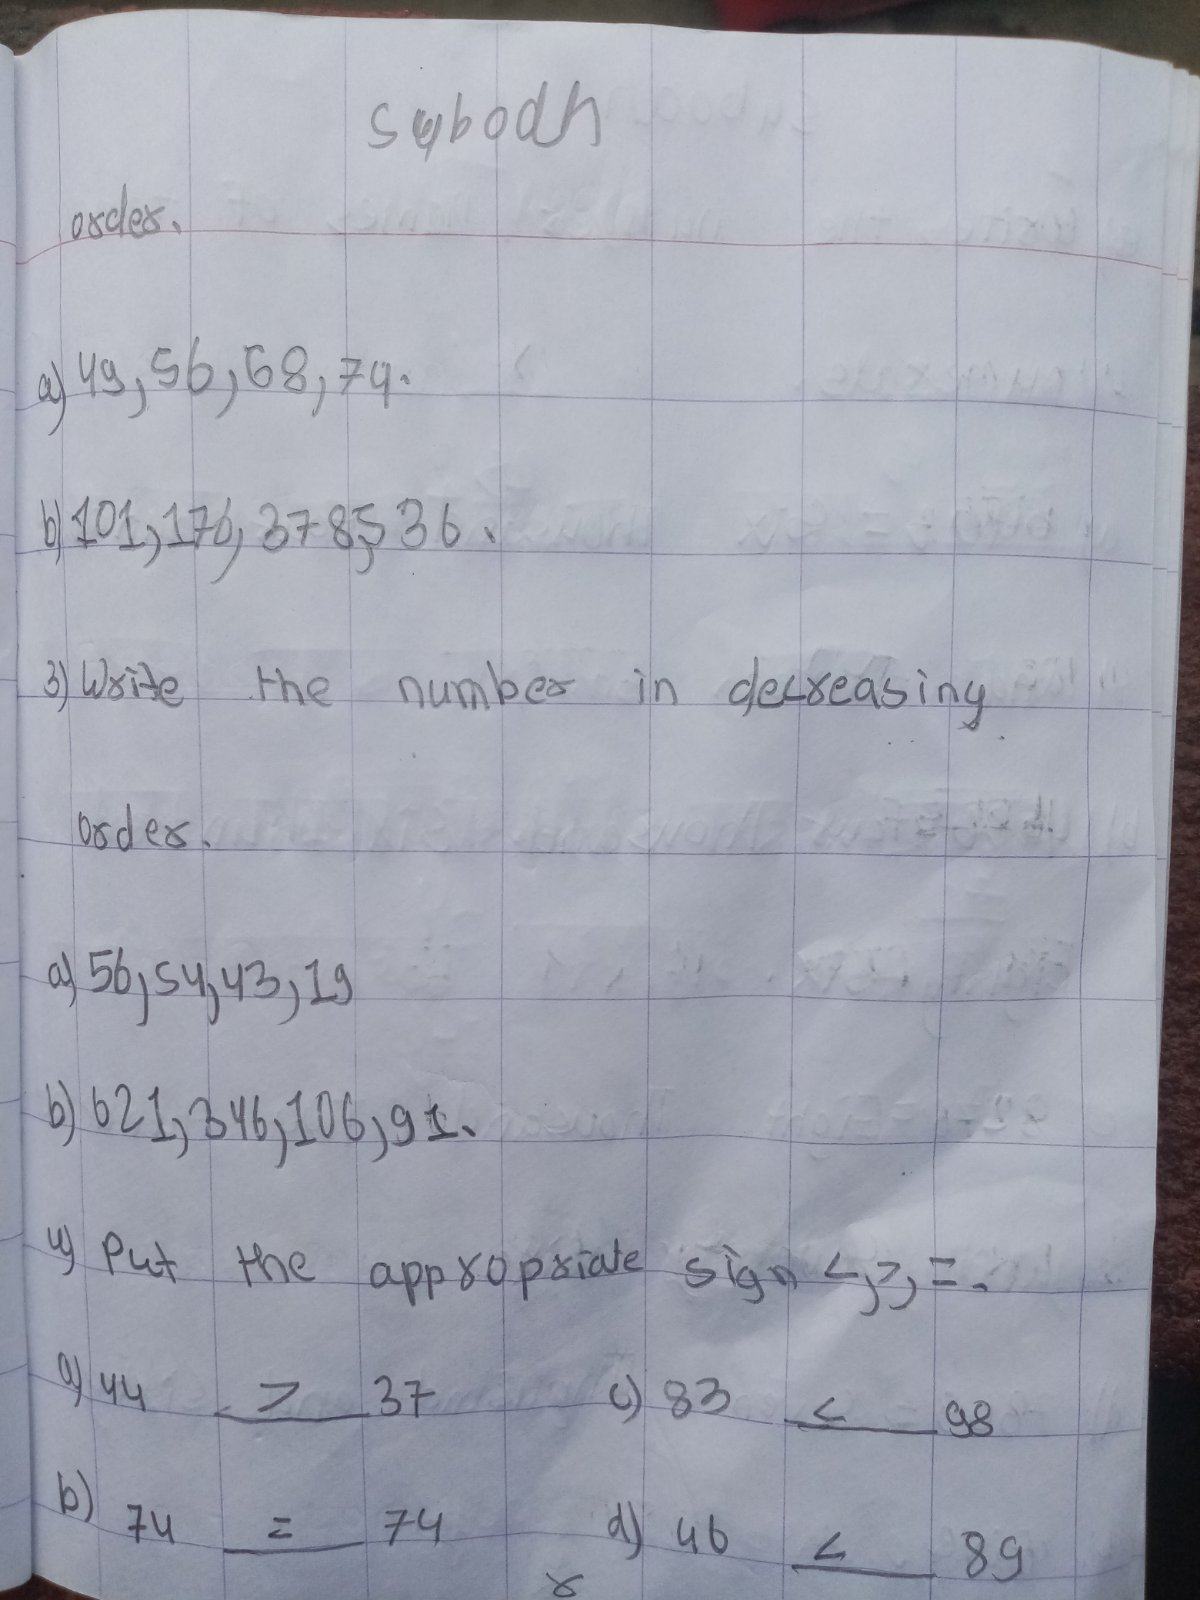 subodh
order.
a) 49, 56, 68, 74.
b) 101, 176, 378, 536.
3) Write the number in decreasing
order.
a) 56, 54, 43, 19
b) 621, 346, 106, 91.
4) Put the appropriate sign <, >, =.
a) 44 > 37 c) 83 < 98
b) 74 = 74 d) 46 < 89